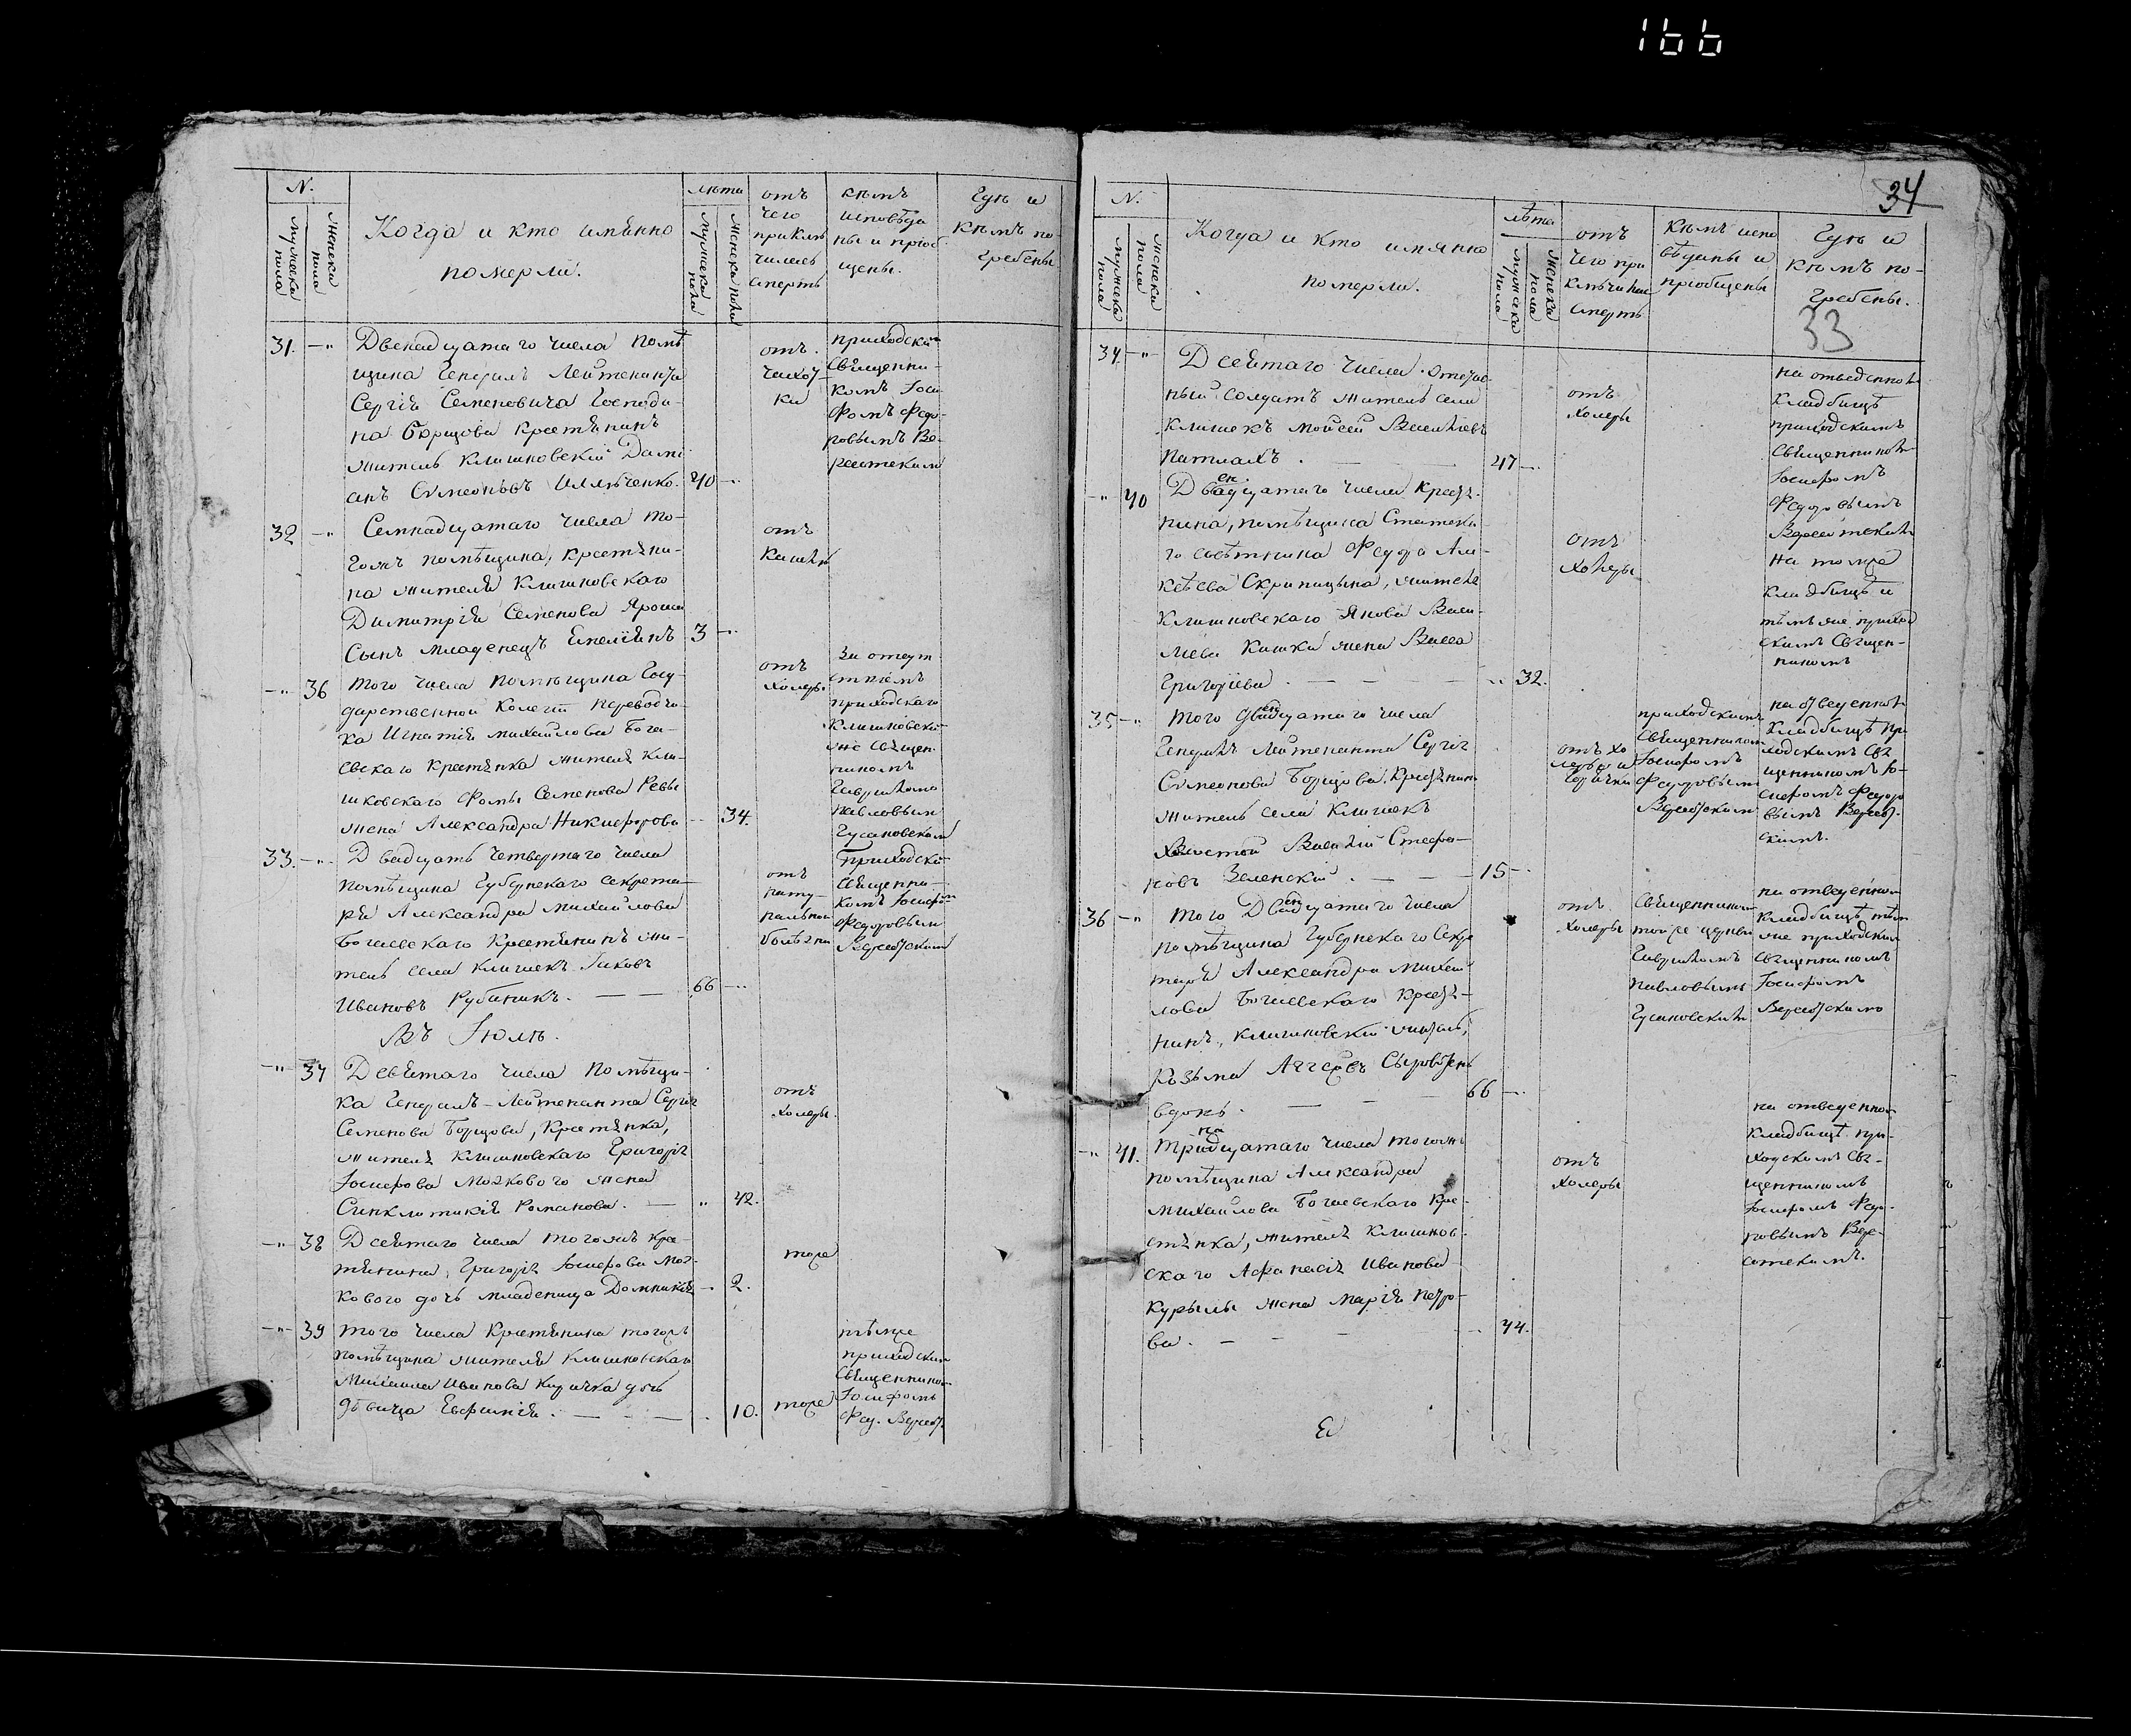 166
34
33
N.
Мужеска пола
Женска пола
Когда и кто имянно
померли.
лѣта
Мужеска пола
Женска пола
отъ
чего
приклю
чилась
смерть
кѣмъ
исповѣда
ны и прiоб
щены.
Гдѣ и
кѣмъ по-
гребены
31.
Двенадцатаго числа помѣ
щика Генералъ Лейтенанта
Сергiя Семеновича Господи-
на Борщова крестьянинъ
житель Клишковскiй Дамi
анъ Симеоновъ Илляченко.
40
отъ
чахот-
ки
приходским
Священни-
комъ Iоси
фомъ Федо-
ровымъ Ве-
рестским
32
Семнадцатаго числа то-
гожъ помѣщика, крестьяни-
на жителя Клишковскаго
Димитрiя Семенова
Сынъ младенецъ Емелiянъ
3
отъ
кашля
36
того числа помѣщика Госу-
дарственной Колегiи переводчи-
ка Игнатiя Михайлова Бога-
евскаго крестьянка жителя Кли-
шковскаго Фомы Семенова Ревы
жена Александра Никифорова
34.
отъ
холеры
За отсут
ствiемъ
приходскаго
Клишковской
же Священ
никомъ
Гаврiиломъ
Павловым
Гусаковским
33.
Двадцать четвертаго числа
помѣщика Губернскаго Секрета-
ря Александра Михайлова
Богаевскаго крестьянинъ жи-
тель села Клишекъ Iаковъ
Ивановъ Рубаникъ.
66
отъ
нату-
ральной
болѣзни
Приходским
Священни-
комъ Iосифом
Федоровым
Верестским
Въ Iюлѣ.
37
Девятаго числа помѣщи-
ка Генералъ-Лейтенанта Сергiя
Семенова Борщова, крестьянка,
жителя Клишковскаго Григорiя
Iосифова Мозкового жена
Синклитикiя Романова.
42.
отъ
холеры.
38
Десятаго числа тогожъ кре-
стьянина, Григорiя Iосифова Моз-
кового дочь младеница Домникiя
2.
тоже
39
того числа крестьянина тогожъ
помѣщика жителя Клишковскаго
Михаила Иванова дочь
дѣвица Евфимiя.
10.
тоже
тѣмже
приходским
Священником
Iосифомъ
Фед. Верест.
N.
Мужеска пола
Женска пола
Когда и кто имянно
померли.
лѣта
Мужеска пола
Женска пола
отъ
чего при
ключилась
смерть
Кѣмъ испо
вѣданы и
прiобщены
Гдѣ и
кѣмъ по-
гребены.
34
Десятаго числа отстав-
ный солдатъ житель села
Клишекъ Мойсей Василiевъ
Патлахъ.
47
отъ
холеры
на отведенном
Кладбищѣ
приходскимъ
Священником
Iосифомъ
Федоровымъ
Верестским
40
Двенадцатаго числа крестья-
нина, помѣщика Статска-
го совѣтника Федора Але-
ксѣева Скрипицына, жителя
Клишковскаго Якова Васи-
лiева Кишки жена Васса
Григорiева.
32.
отъ
холеры
на томже
Кладбищѣ и
тѣмъ же приход
скимъ Священ-
никомъ
35
того двенадцатаго числа
Генералъ Лейтенанта Сергiя
Симеонова Борщова крестьянин
житель села Клишекъ
Холостой Василiй Стефа-
новъ Зеленскiй.
15
отъ хо
леры и
горячки
приходскимъ
Священником
Iосифомъ
Федоровым
Верестским
на отведенном
Кладбищѣ при
ходскимъ Свя
щенникомъ Iо-
сифомъ Федоро
вымъ Верест-
скимъ.
36
того Двенадцатаго числа
помѣщика Губернскаго Секре
таря Александра Михай
лова Богаевскаго крестья-
нинъ, Клишковскiй житель,
Козьма Аггеевъ
вдовъ.
66
отъ
холеры
Священником
тойже церкви
Гаврiиломъ
Павловымъ
Гусаковским
на отведенном
Кладбищѣ тѣм
же приходским
Священникомъ
Iосифомъ
Верестскимъ
41.
Тринадцатаго числа тогожъ
помѣщика Александра
Михайлова Богаевскаго кре-
стьянка, жителя Клишков-
скаго Афанасiя Иванова
Курыло жена Марiя Петро-
ва.
44.
отъ
холеры
на отведенном
Кладбищѣ при-
ходскимъ Свя-
щенникомъ
Iосифомъ Федо-
ровымъ Вере-
стскимъ.